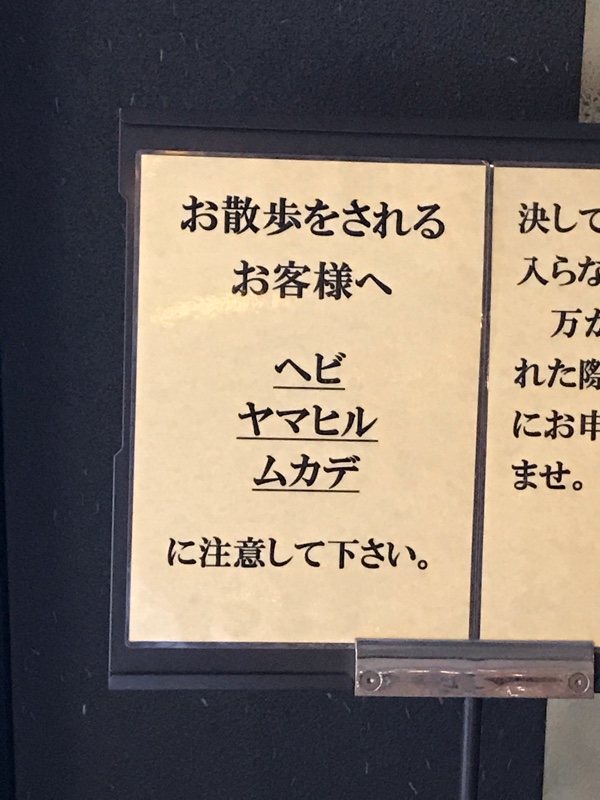 お散歩をされる
お客様へ
ヘビ
ヤマヒル
ムカデ
に注意して下さい。
決して
入らな
万が
れた際
にお申
ませ。